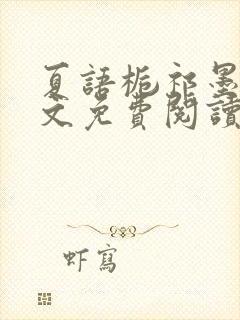 夏語梔祁墨
文免費閱讀
虾寫